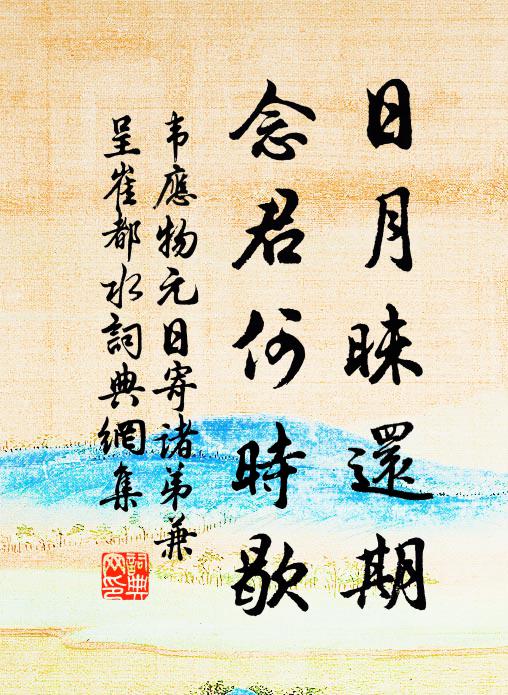 日月昧還期
念君何時歇
韦應物元日寄諸弟兼
呈崔都水詞典網集
詞典
网印